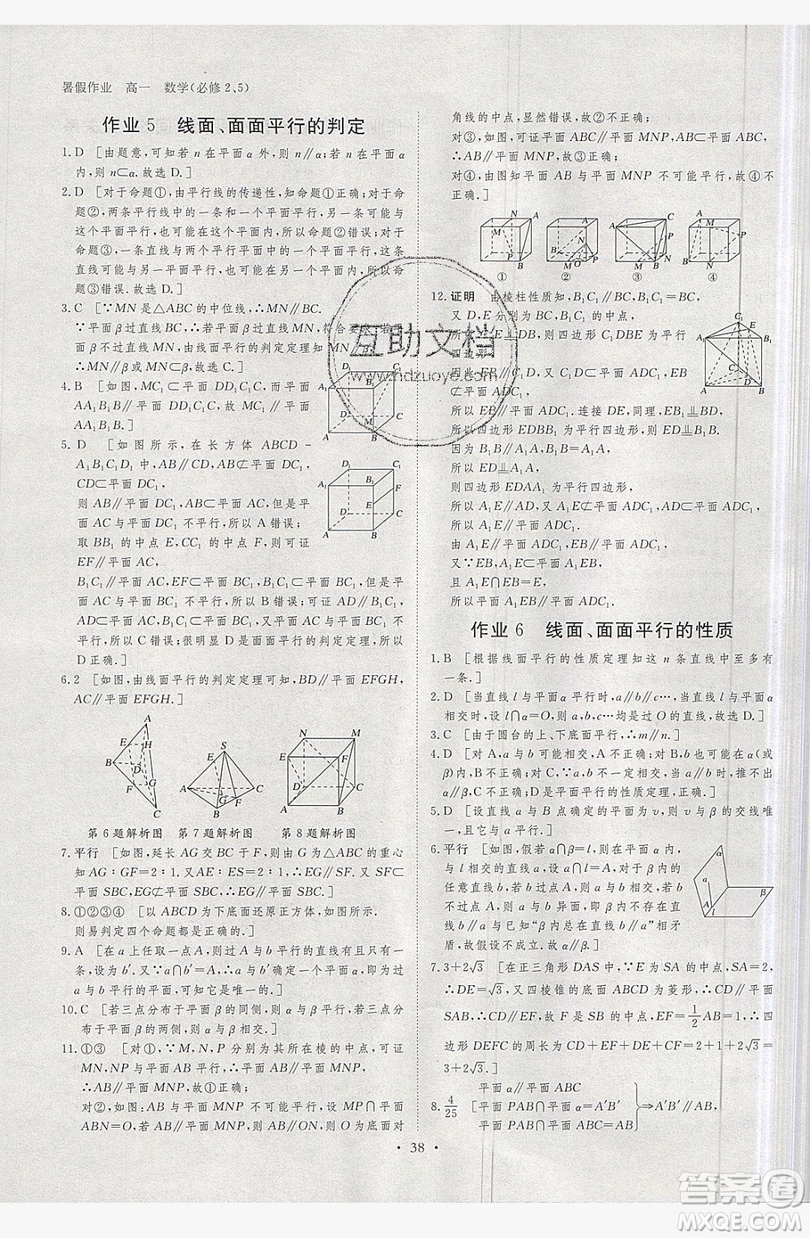 暑假作业 高一 数学(必修2、5)
作业 5 线面、面面平行的判定
1. D [由题意,可知若 n 在平面 α 外,则 n∥α;若 n 在平面 α
内,则 n⊂α.故选 D.]
2. D [对于命题①,由平行线的传递性,命题①正确;对于命
题②,两条平行线中的一条和一个平面平行,另一条可能与
这个平面平行,也可能在这个平面内,所以命题②错误;对于
命题③,一条直线和两个平行平面中的一个平行,这条直线
可能与另一个平面平行,也可能在另一个平面内,所以命题
③错误.故选 D.]
3. C [∵MN 是△ABC 的中位线,∴MN∥BC.
∵平面 β 过直线 BC,∴若平面 β 过直线 MN,符合要求;若平
面 β 不过直线 MN,由线面平行的判定定理知 MN∥β.
∴MN∥β或 MN⊂β.故选 C.]
4. B [如图,MC₁⊂平面 DD₁C₁C,而平面
AA₁B₁B∥平面 DD₁C₁C,故 MC₁∥平面
AA₁B₁B.]
5. D [如图所示,在长方体 ABCD－
A₁B₁C₁D₁ 中,AA₁∥平面 DC₁,
CD⊂平面 DC₁,AA₁ 不平行于 CD,
则 AB∥平面 DC₁,AB⊂平面 AC,但是平面
AC 与平面 DC₁ 不平行,所以 A 错误;
取 BB₁ 的中点 E,CC₁ 的中点 F,则可证
EF∥平面 AC,
B₁C₁∥平面 AC,EF⊂平面 BC₁,B₁C₁⊂平面 BC₁,但是平面
AC 与平面 BC₁ 不平行,所以 B 错误;可证 AD∥B₁C₁,
AD⊂平面 AC,B₁C₁⊂平面 BC₁,又平面 AC 与平面 BC₁ 不
平行,所以 C 错误;很明显 D 满足面面平行的判定定理,所以
D 正确.]
6. 2 [如图,由线面平行的判定定理可知 BD∥平面 EFGH,
AC∥平面 EFGH.]
第6题解析图 第7题解析图 第8题解析图
7. 平行 [如图,延长 AG 交 BC 于 F,则由 G 为△ABC 的重心
知 AG∶GF=2∶1,又 AE∶ES=2∶1,∴EG∥SF,又 SF⊂平
面 SBC,EG⊄平面 SBC,∴EG∥平面 SBC.]
8. ①②③④ [以 ABCD 为下底面还原正方体,如图所示.
则易判定四个命题都是正确的.]
9. A [在 a 上任取一点 A,则 A 与 b 确定一平面,设该平面与
α 交于 b′,则 b∥b′.又 a∩b′=A,∴b′与 a 确定的平面 α∥β,
∴满足题意的平面 β 只有一个.]
10. C [若三点分布于平面 β 的同侧,则 α 与 β 平行,若三点分
布于平面 β 的两侧,则 α 与 β 相交.]
11. ①③ [对①,∵M,N,P 分别为其所在棱的中点,∴可证
MN∥平面 ABC,NP∥平面 ABC,
∴平面 ABC∥平面 MNP.∴AB∥平面 MNP.故①正确;
对②,如图,若 AB∥平面 MNP,设 MP∩平面
ABN=O,∴可得 AB∥NO,∵N 为其所在
棱的中点,显然错误,故②错误;
对③,如图,可证平面 ABC∥平面 MNP,∵AB⊂平面 ABC,
∴AB∥平面 MNP,故③正确;
对④,如图,可知 AB 与平面 MNP 不可能平行,故④不
正确.]
① ② ③ ④
12. 证明 由棱柱性质知,B₁C₁∥BC,B₁C₁=BC,
又 D,E 分别为 BC,B₁C₁ 的中点,
所以 C₁E⊥∥DB,则四边形 C₁DBE 为平行四
边形,因此 EB∥C₁D,
又 C₁D⊂平面 ADC₁,
EB⊄平面 ADC₁,
所以 EB∥平面 ADC₁.连接 DE,同理,EB₁⊥∥BD,
所以四边形 EDBB₁ 为平行四边形,则 ED⊥∥B₁B.
所以 ED⊥∥A₁A,
则四边形 EDAA₁ 为平行四边形,
所以 A₁E∥AD,又 A₁E⊄平面 ADC₁,AD⊂平面 ADC₁,
所以 A₁E∥平面 ADC₁.
又∵A₁E⊂平面 A₁EB,EB⊂平面 A₁EB,
且 A₁E∩EB=E,
所以平面 A₁EB∥平面 ADC₁.
作业 6 线面、面面平行的性质
1. B [根据线面平行的性质定理知这 n 条直线中至多有
一条.]
2. D [当直线 l 与平面 α 平行时,a∥b∥c…,当直线 l 与平面 α
相交时,设 l∩α=O,则 a,b,c,…是过点 O 的直线,故选 D.]
3. C [由于圆台的上、下底面平行,∴m∥n.]
4. D [对 A,b 可能与 α 相交,∴A 不正确;对 B,a 可能在 α(或
β)内,∴B 不一定正确;对 C,如图,当 a∥b 时,α 与 β 可能相
交,∴C 不正确;D 是平面平行的性质定理,∴D 正确.]
5. D [设直线 a 与 B 点确定的平面为 γ,则 γ 与 β 的交线唯
一,且它与 a 平行.]
6. 平行 [假设 α∩β=l,则在平面 α 内,与
l 相交的直线 a,设 a∩l=A,对于 β 内的
任意直线 b,若 b 过点 A,则 a 与 b 相交,
若 b 不过点 A,则 a 与 b 异面,即 β 内不
存在直线 b∥a.与题中“β 内总存在与 a
平行的直线”矛
盾,故假设不成立.故 α∥β.]
7. 3+2√3 [在正三角形 DAS 中,∵E 为 SA 的中点,SA=2,
∴DE=√3,又四棱锥的底面为菱形,CD∥AB,∴CD∥平面
SAB,∴CD∥EF,故 F 为 SB 的中点,EF=1/2AB=1,∴四
边形 DEFC 的周长为 CD+DE+EF+FC=2+√3+1+√3=
3+2√3.]
8. 4/25 [平面 α∥平面 ABC
平面 PAB∩平面 α=A′B′
平面 PAB∩平面 ABC=AB } ⇒A′B′∥AB
• 38 •
互助文档
www.hdzuoye.com
答案圈
MXQE.COM